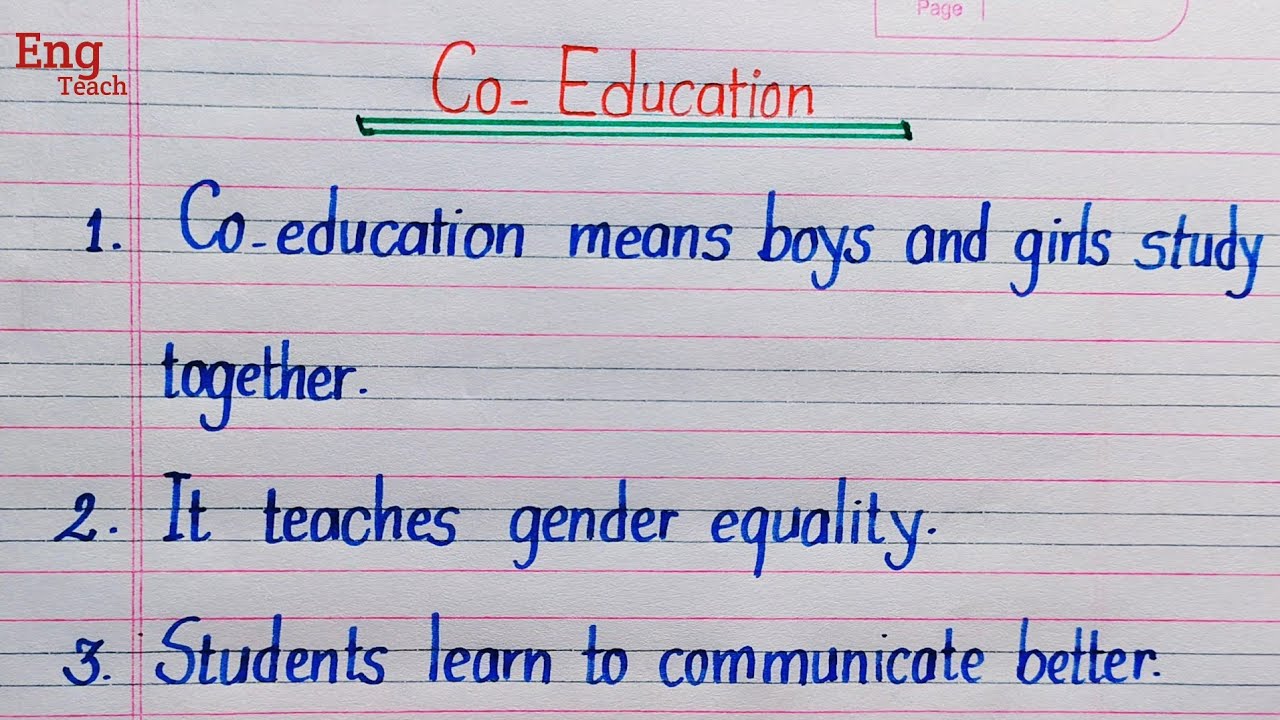 Page
Eng
Teach
Co- Education
1. Co-education means boys and girls study
together.
2. It teaches gender equality.
3. Students learn to communicate better.